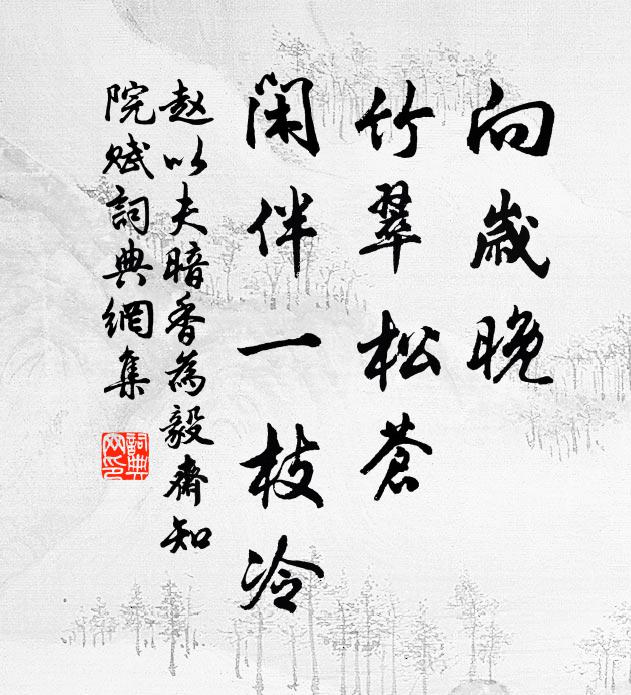 向歲晚
竹翠松蒼
閑伴一枝冷
趙以夫暗香為毅齋知
院賦詞典網集
詞典網印